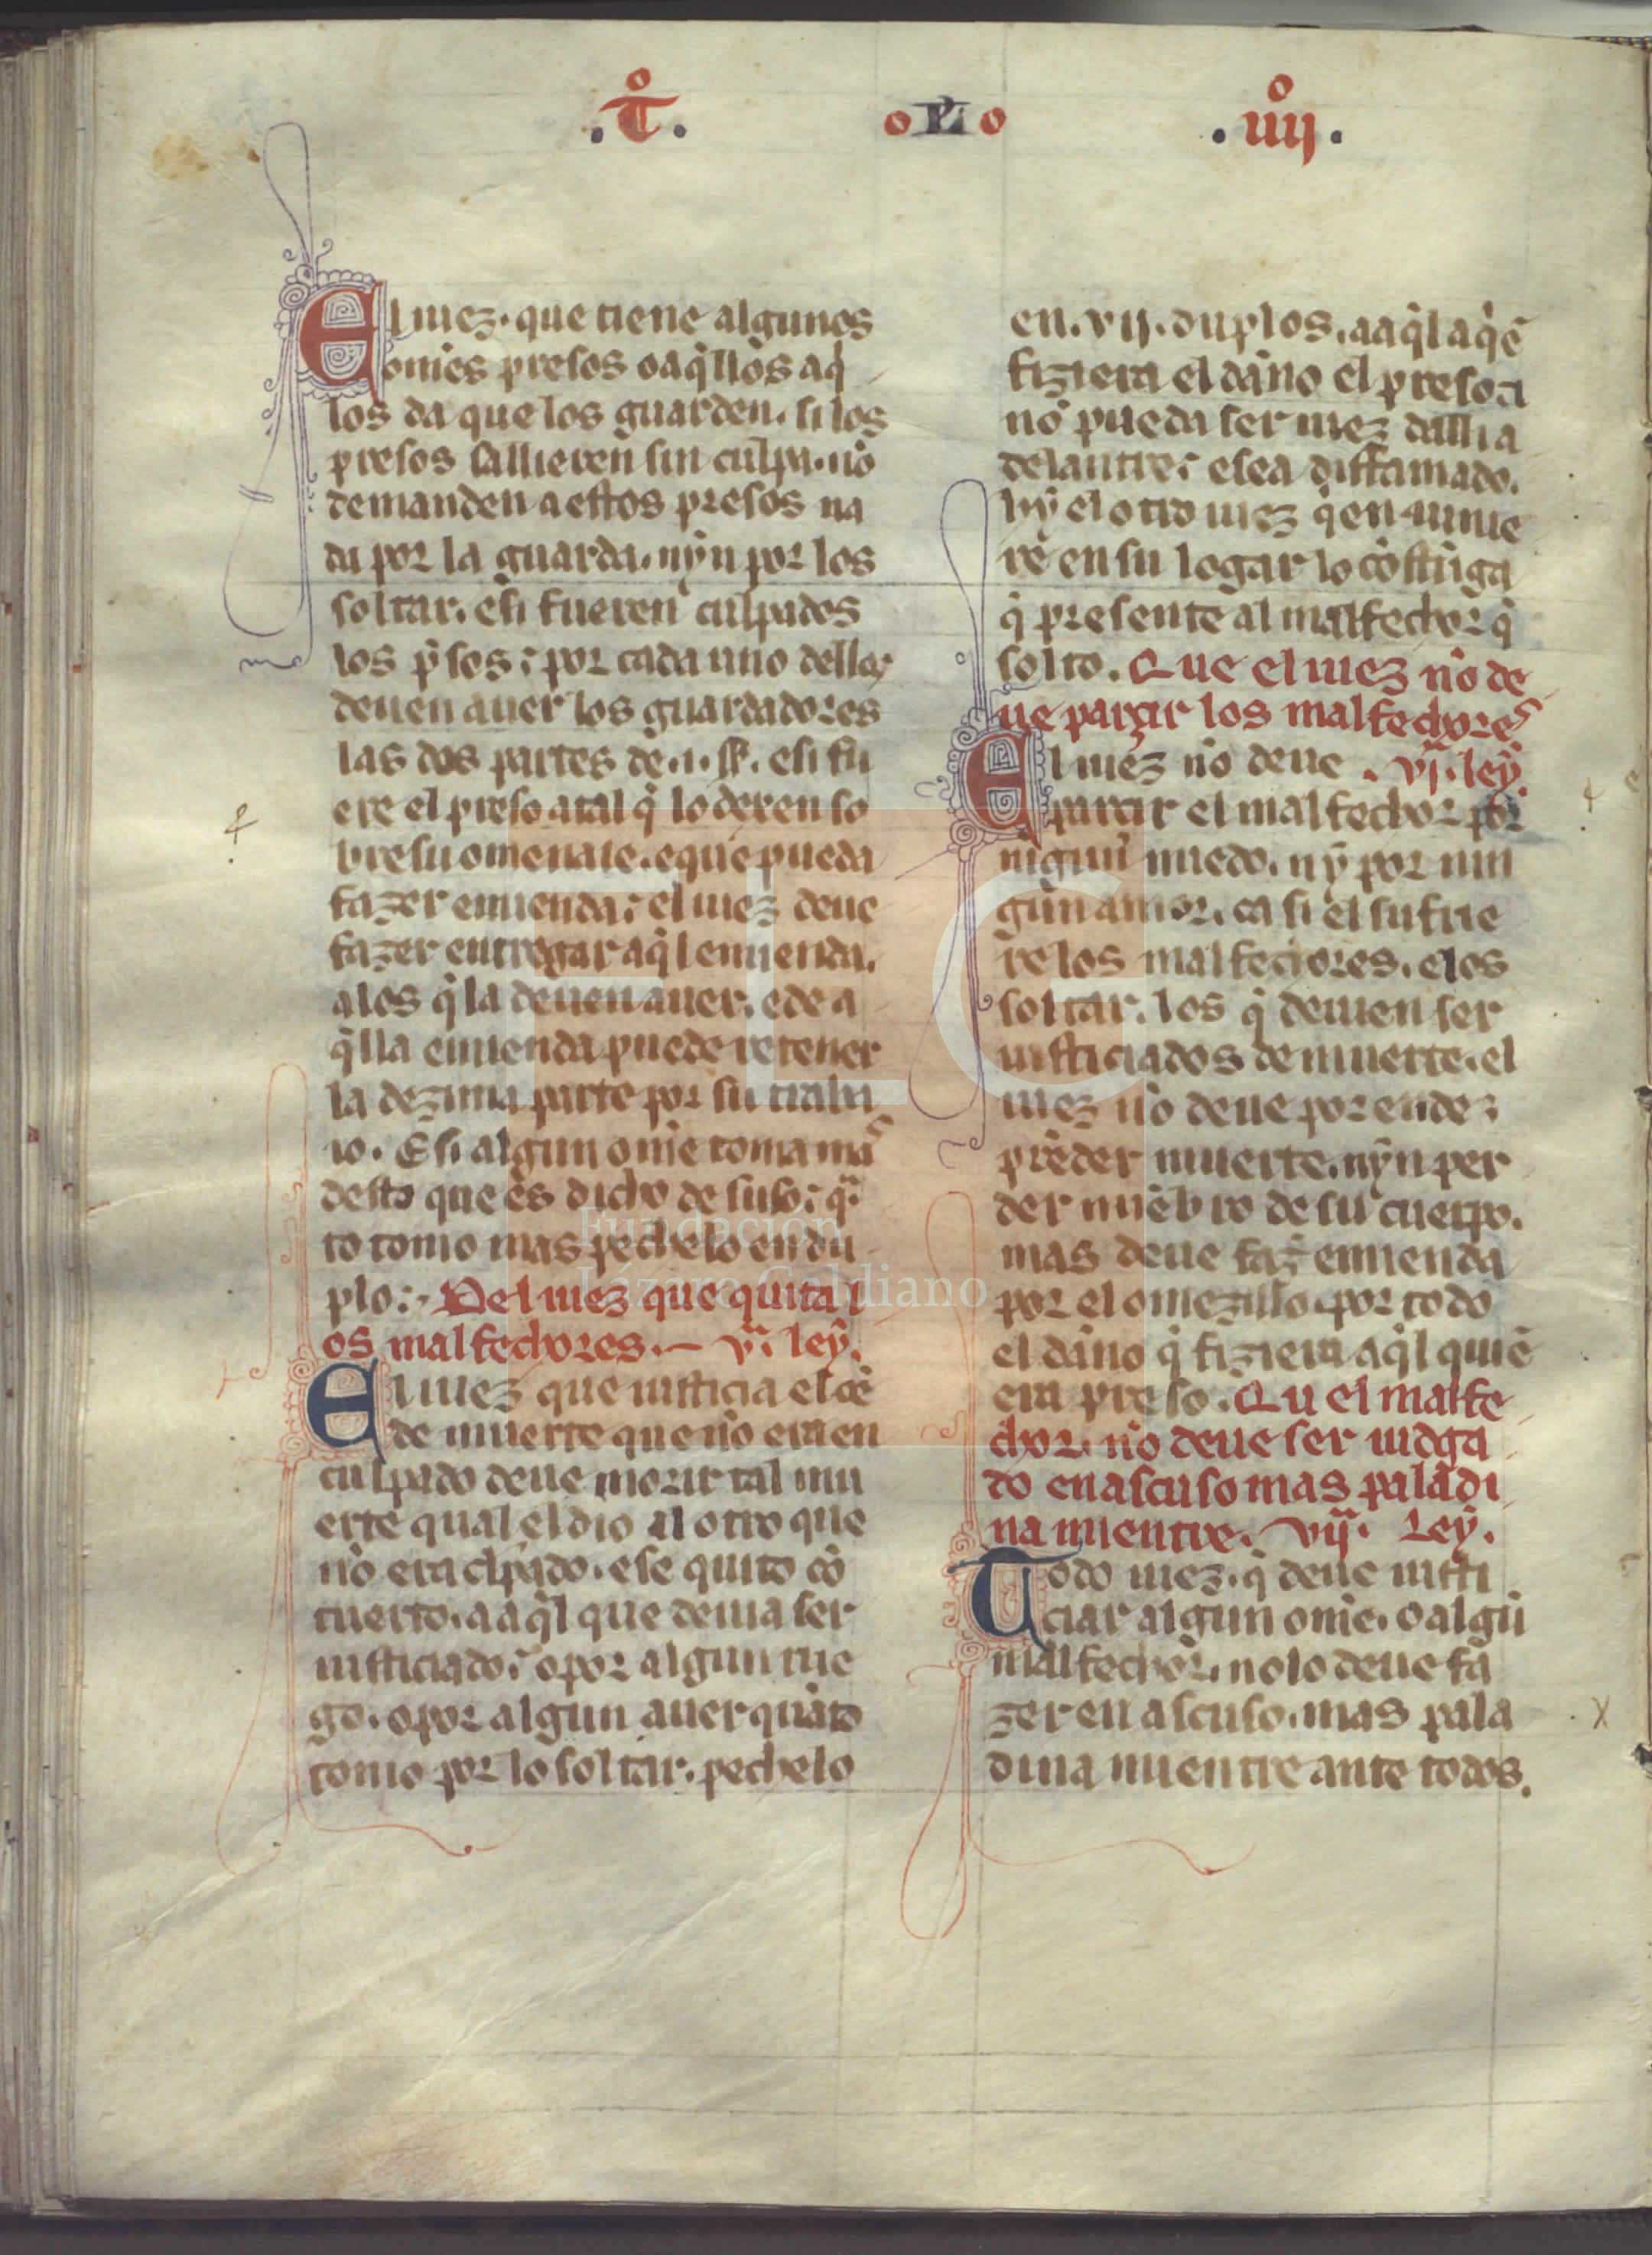 .T̊. o PLi o .iiij̊.
El iuez. que tiene algunos
om̃es presos o aq̃llos a q̃
los da que los guarden. si los
presos sallieren sin culpa. nõ
demanden a estos presos na
da por la guarda. nẏn por los
soltar. e si fueren culpados
los p̃sos; por cada uno dellos
deuen auer los guardadores
las dos partes de .i. sl̃. e si fu
ere el preso atal q̃ lo dexen so
bre su omenaie. e que pueda
fazer emienda; el iuez deue
fazer entregar aq̃l emienda.
a los q̃ la deuen auer. e de a
q̃lla emienda puede retener
la dezima parte por su traba
io. E si algun om̃e toma mas
desto que es dicho de suso; q̃n
to tomo mas pechelo en du
plo; Del iuez que quita l
os malfechores. — v.ª leẏ.
El iuez que iusticia el oẽ
de muerte que nõ era en
culpado deue morir tal mu
erte qual el dio al otro que
nõ era clpado. e se quito cõ
tuerto. a aq̃l que deuia ser
iusticiado; o por algun rue
go. o por algun auer quãto
tomo por lo soltar. pechelo
en. vij. duplos. a aq̃l a q̃ẽ
fiziera el dãno el preso. a
nõ pueda ser iuez dalli a
delantre; e sea diffamado.
hẏ el otro iuez q̃ en auinie
rẽ en su logar lo cõstriga
q̃ presente al malfechor q̃
solto. Que el iuez nõ de
ue parçir los malfechores
El iuez nõ deue . vj.ª leẏ.
parçir el malfechor por
nigun miedo. nẏ por nin
gun amor. ca si el sufrie
re los malfectores. e los
soltar. los q̃ deuien ser
iusticiados de muerte. el
iuez nõ deue por ende;
prẽder muerte. nẏn per
der miẽbro de su cuerpo.
mas deue faz̃ emienda
por el omezillo. por todo
el dãno q̃ fiziera aq̃l quiẽ
era preso. Qu el malfe
chor. nõ deue ser iudga
do en ascuso mas paladi
na mientre. vij.ª Leẏ.
Todo iuez. q̃ deue iusti
ciar algun om̃e. o algũ
malfechor. no lo deue fa
zer en ascuso. mas pala
dina mientre ante todos.
Fundación
Lázaro Galdiano
FLG